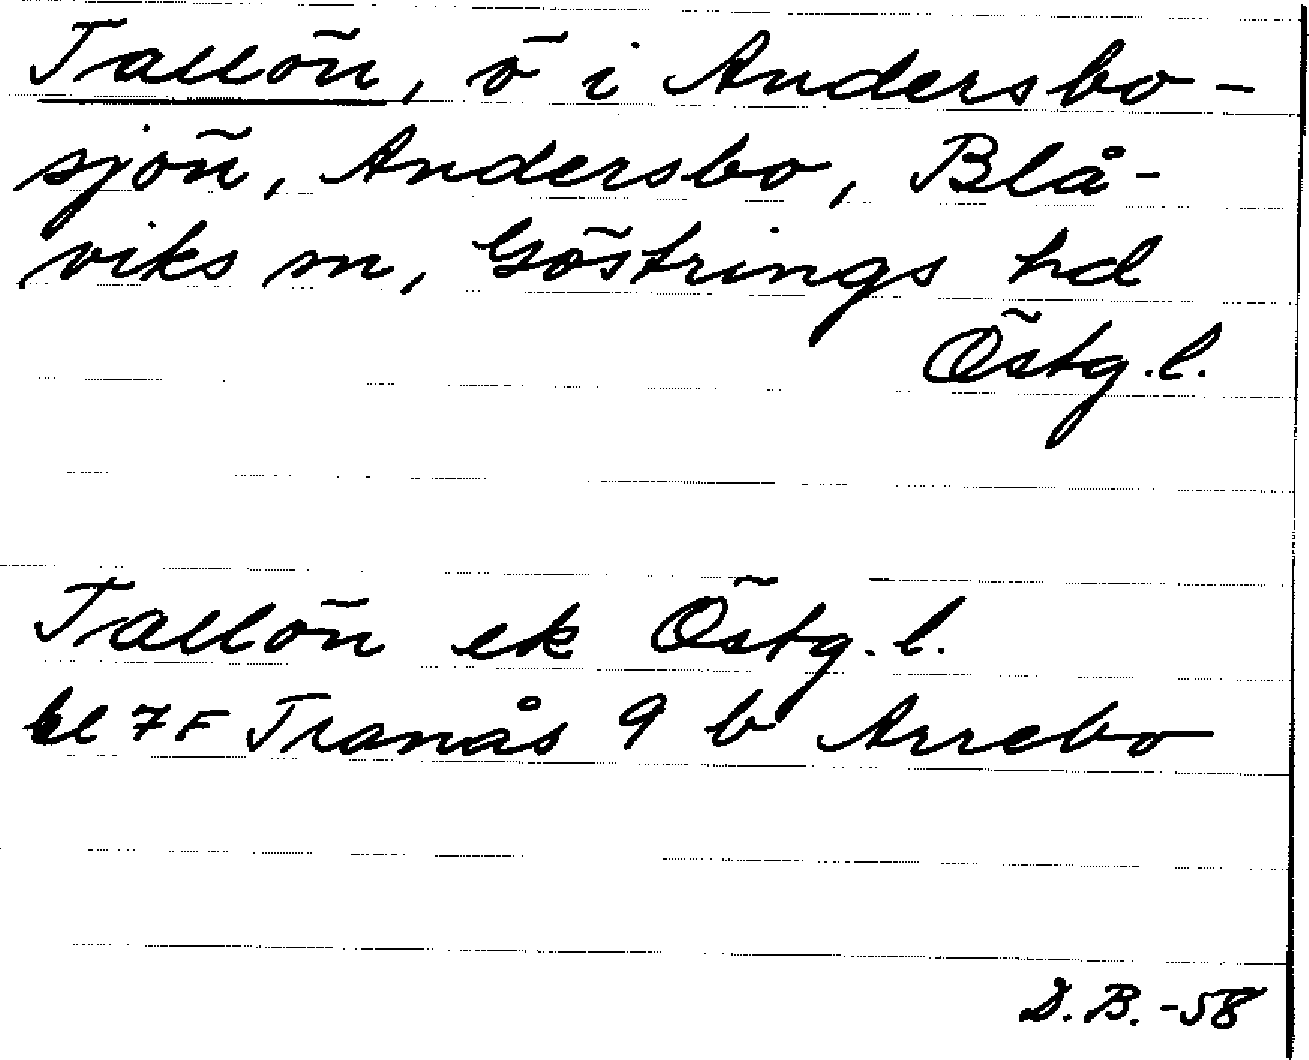 Tallön, ö i Andersbo-
sjön, Andersbo, Blå-
viks sn, Göstrings hd
Östg.l.
Tallön ek Östg.l.
bl 7F Tranås 9 b Arrebo
D.B.-58